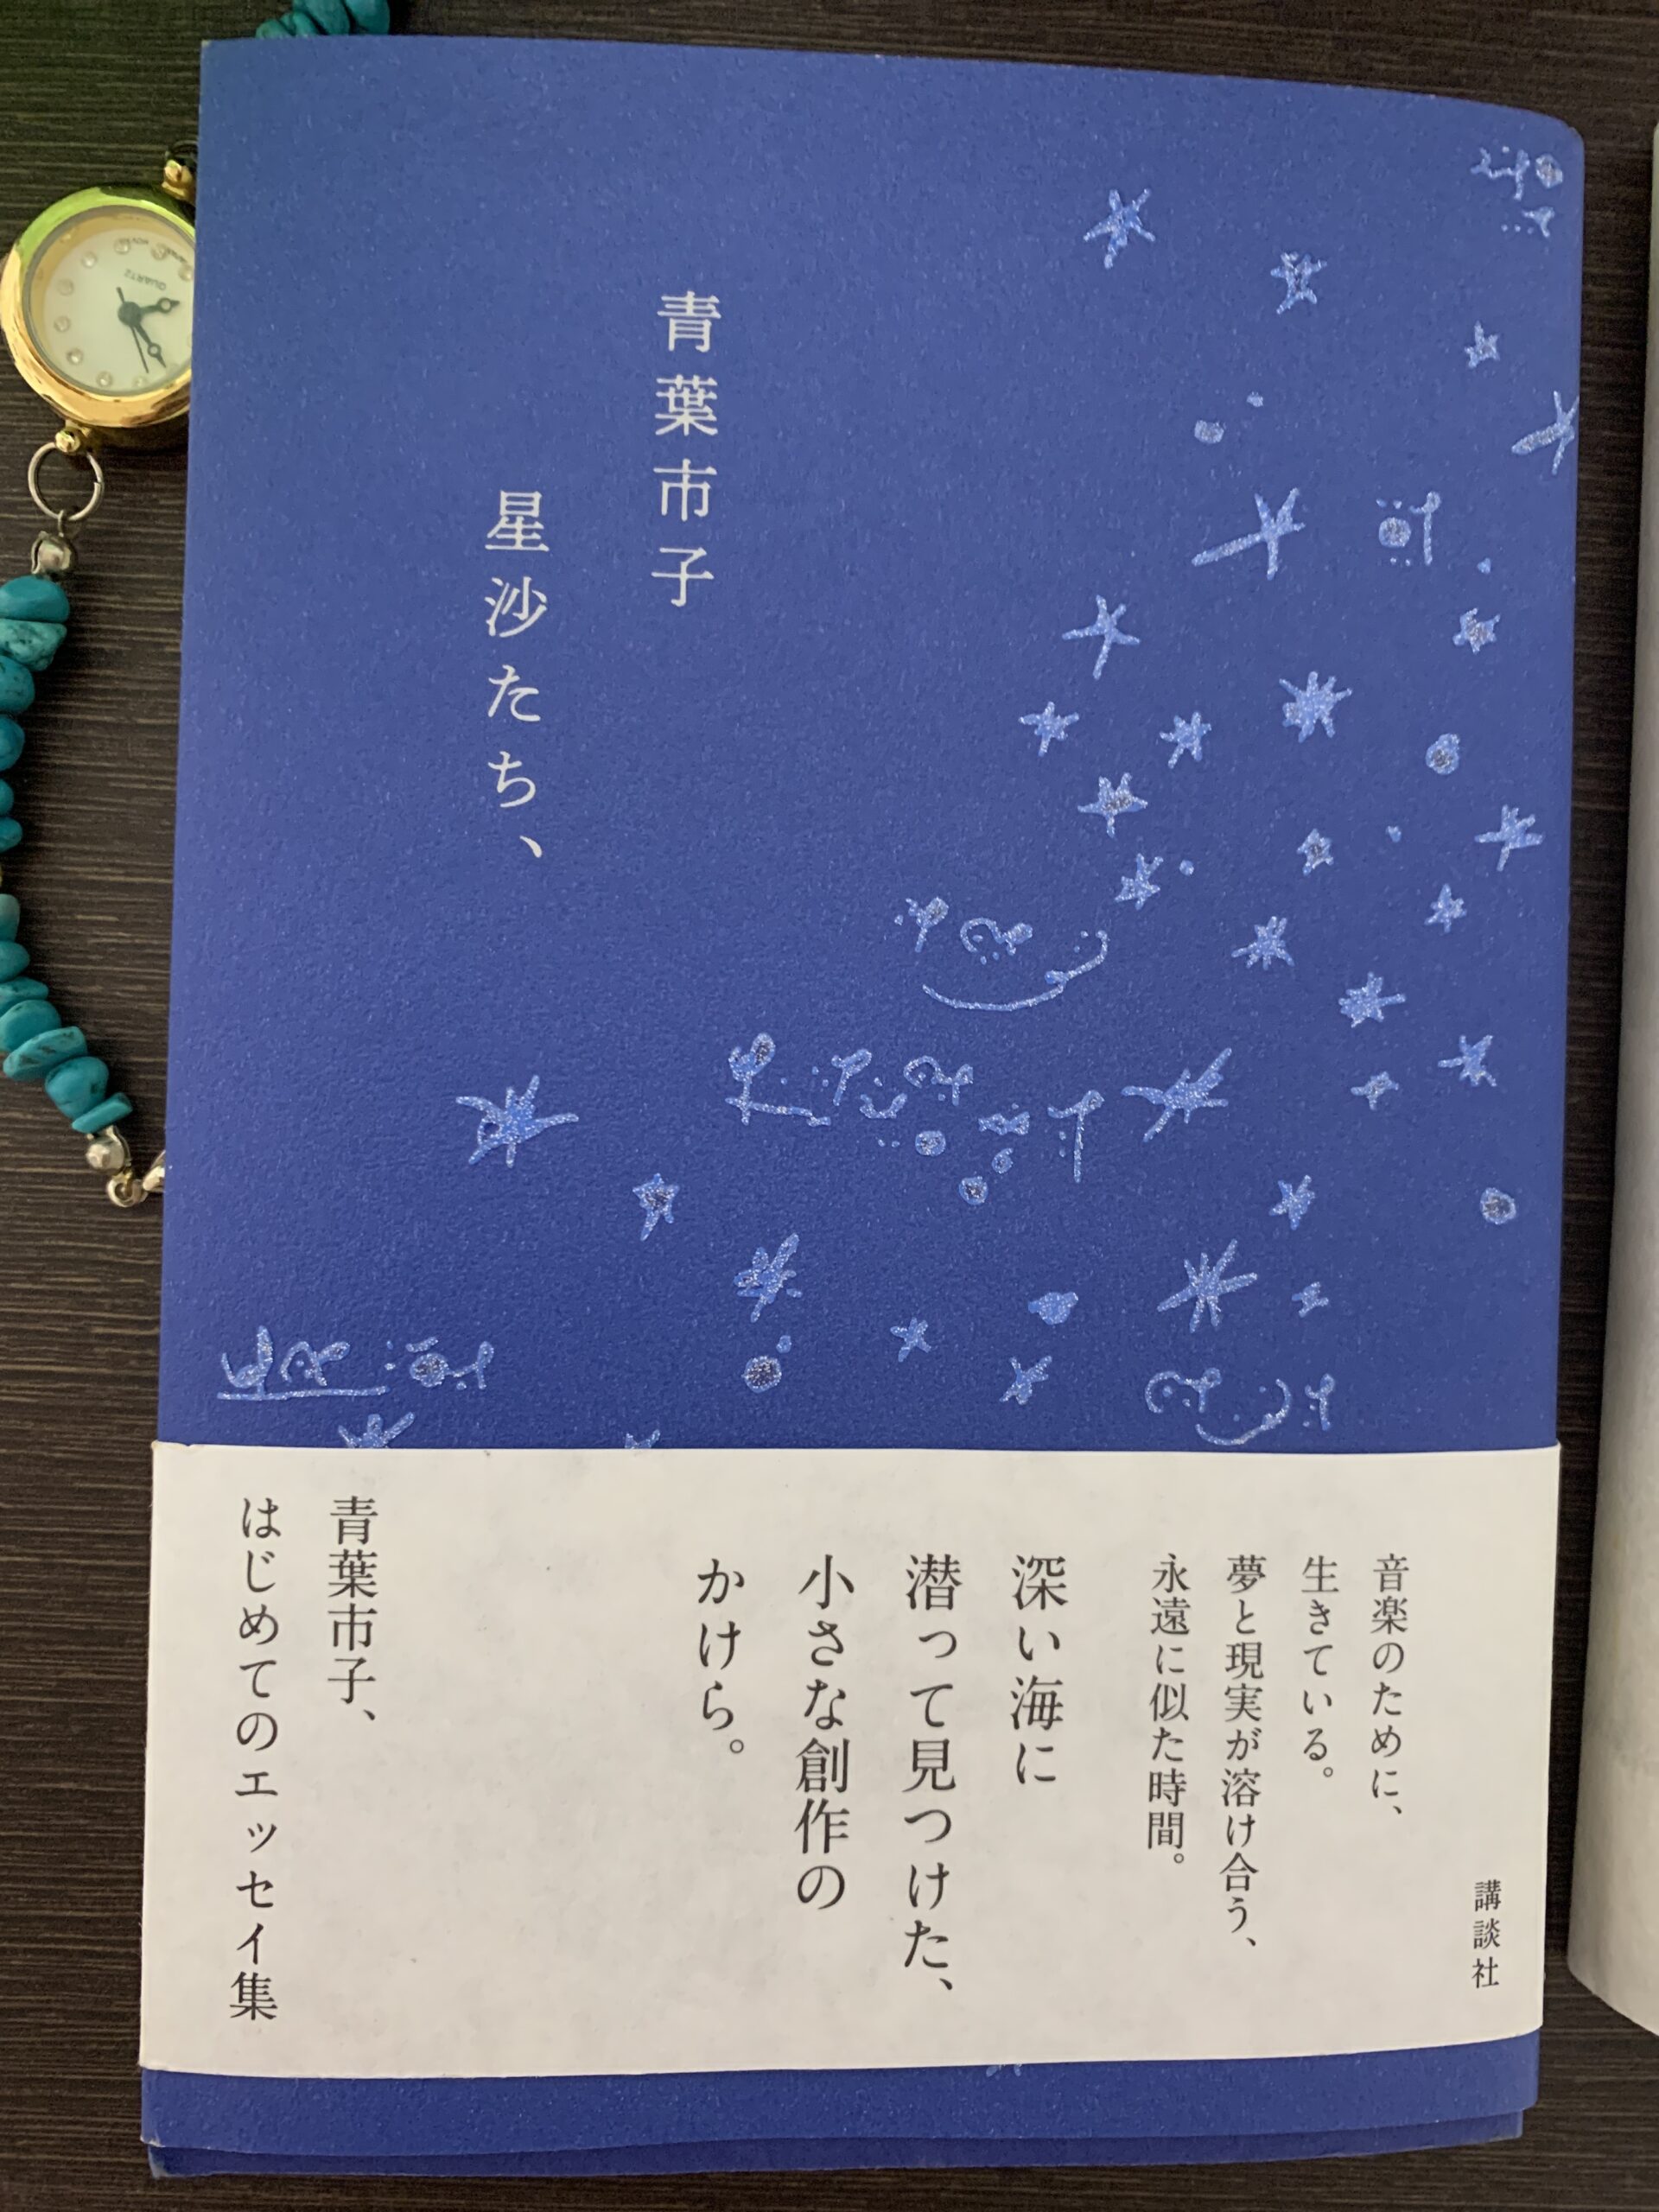 青葉市子
星沙たち、
音楽のために、
生きている。
夢と現実が溶け合う、
永遠に似た時間。
深い海に
潜って見つけた、
小さな創作の
かけら。
青葉市子、
はじめてのエッセイ集
講談社
QUARTZ